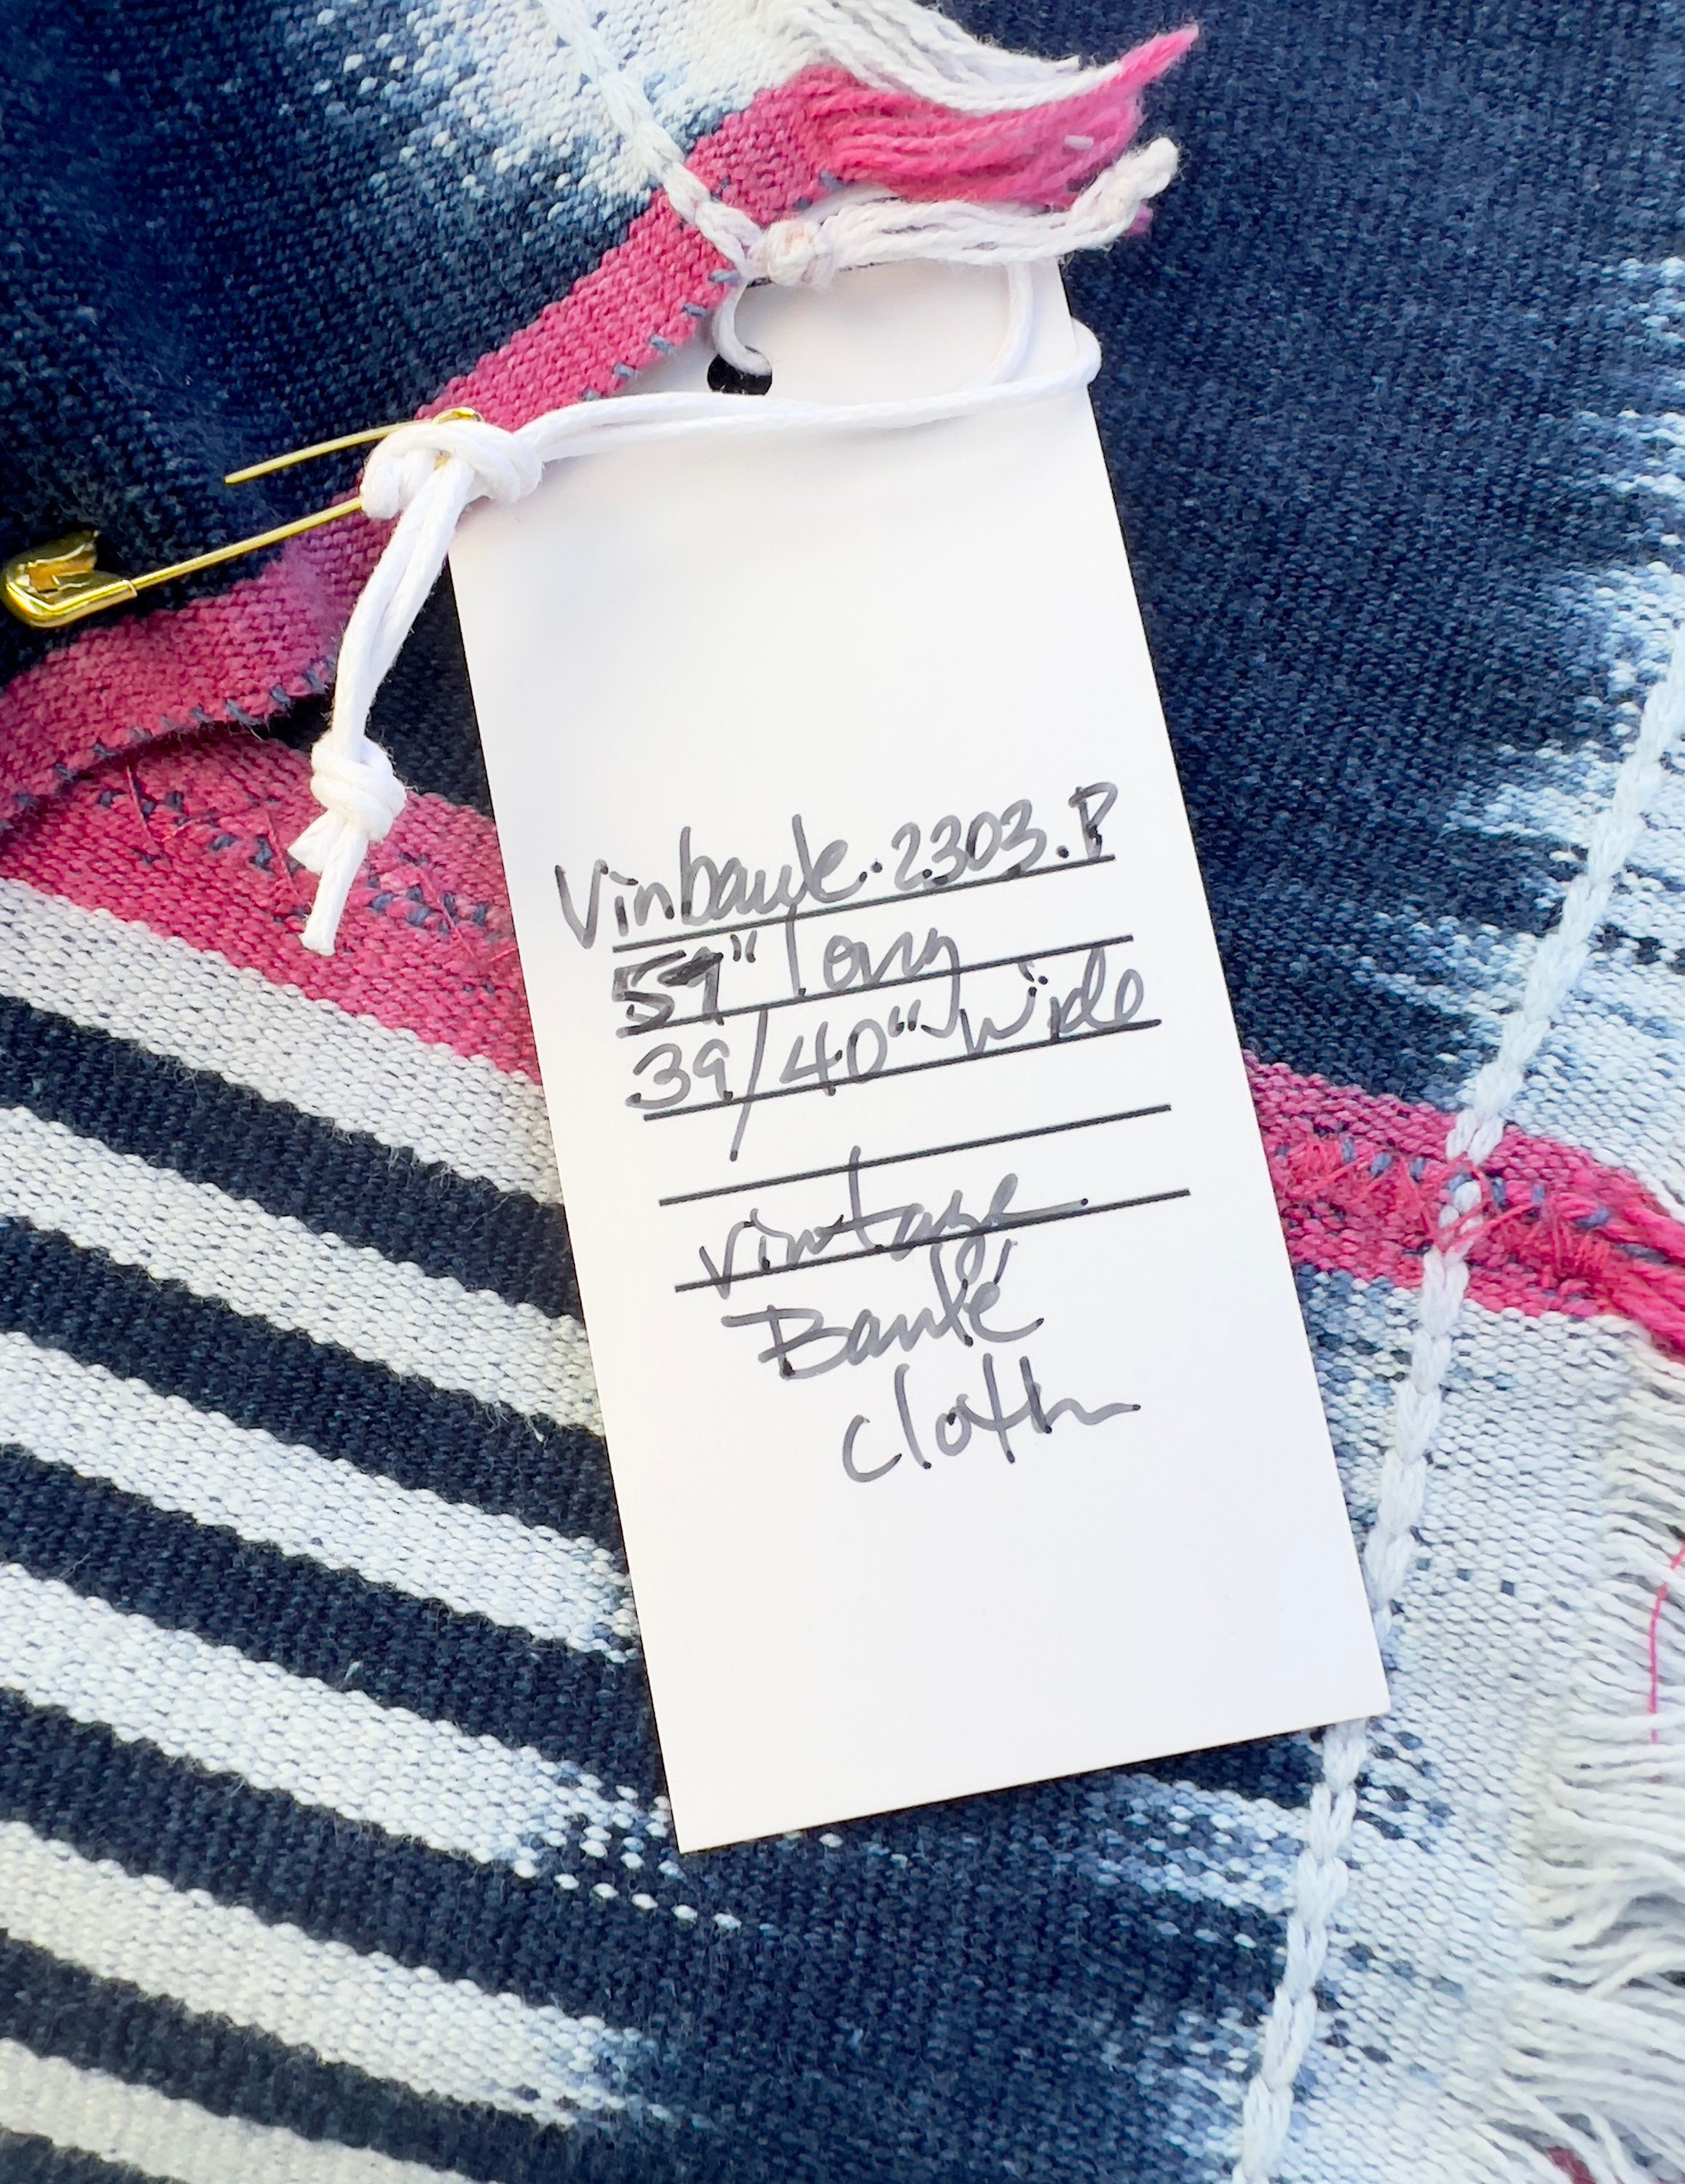 Vinbaule.2303.P
59" long
39/40" Wide
vintage
Baulé
cloth